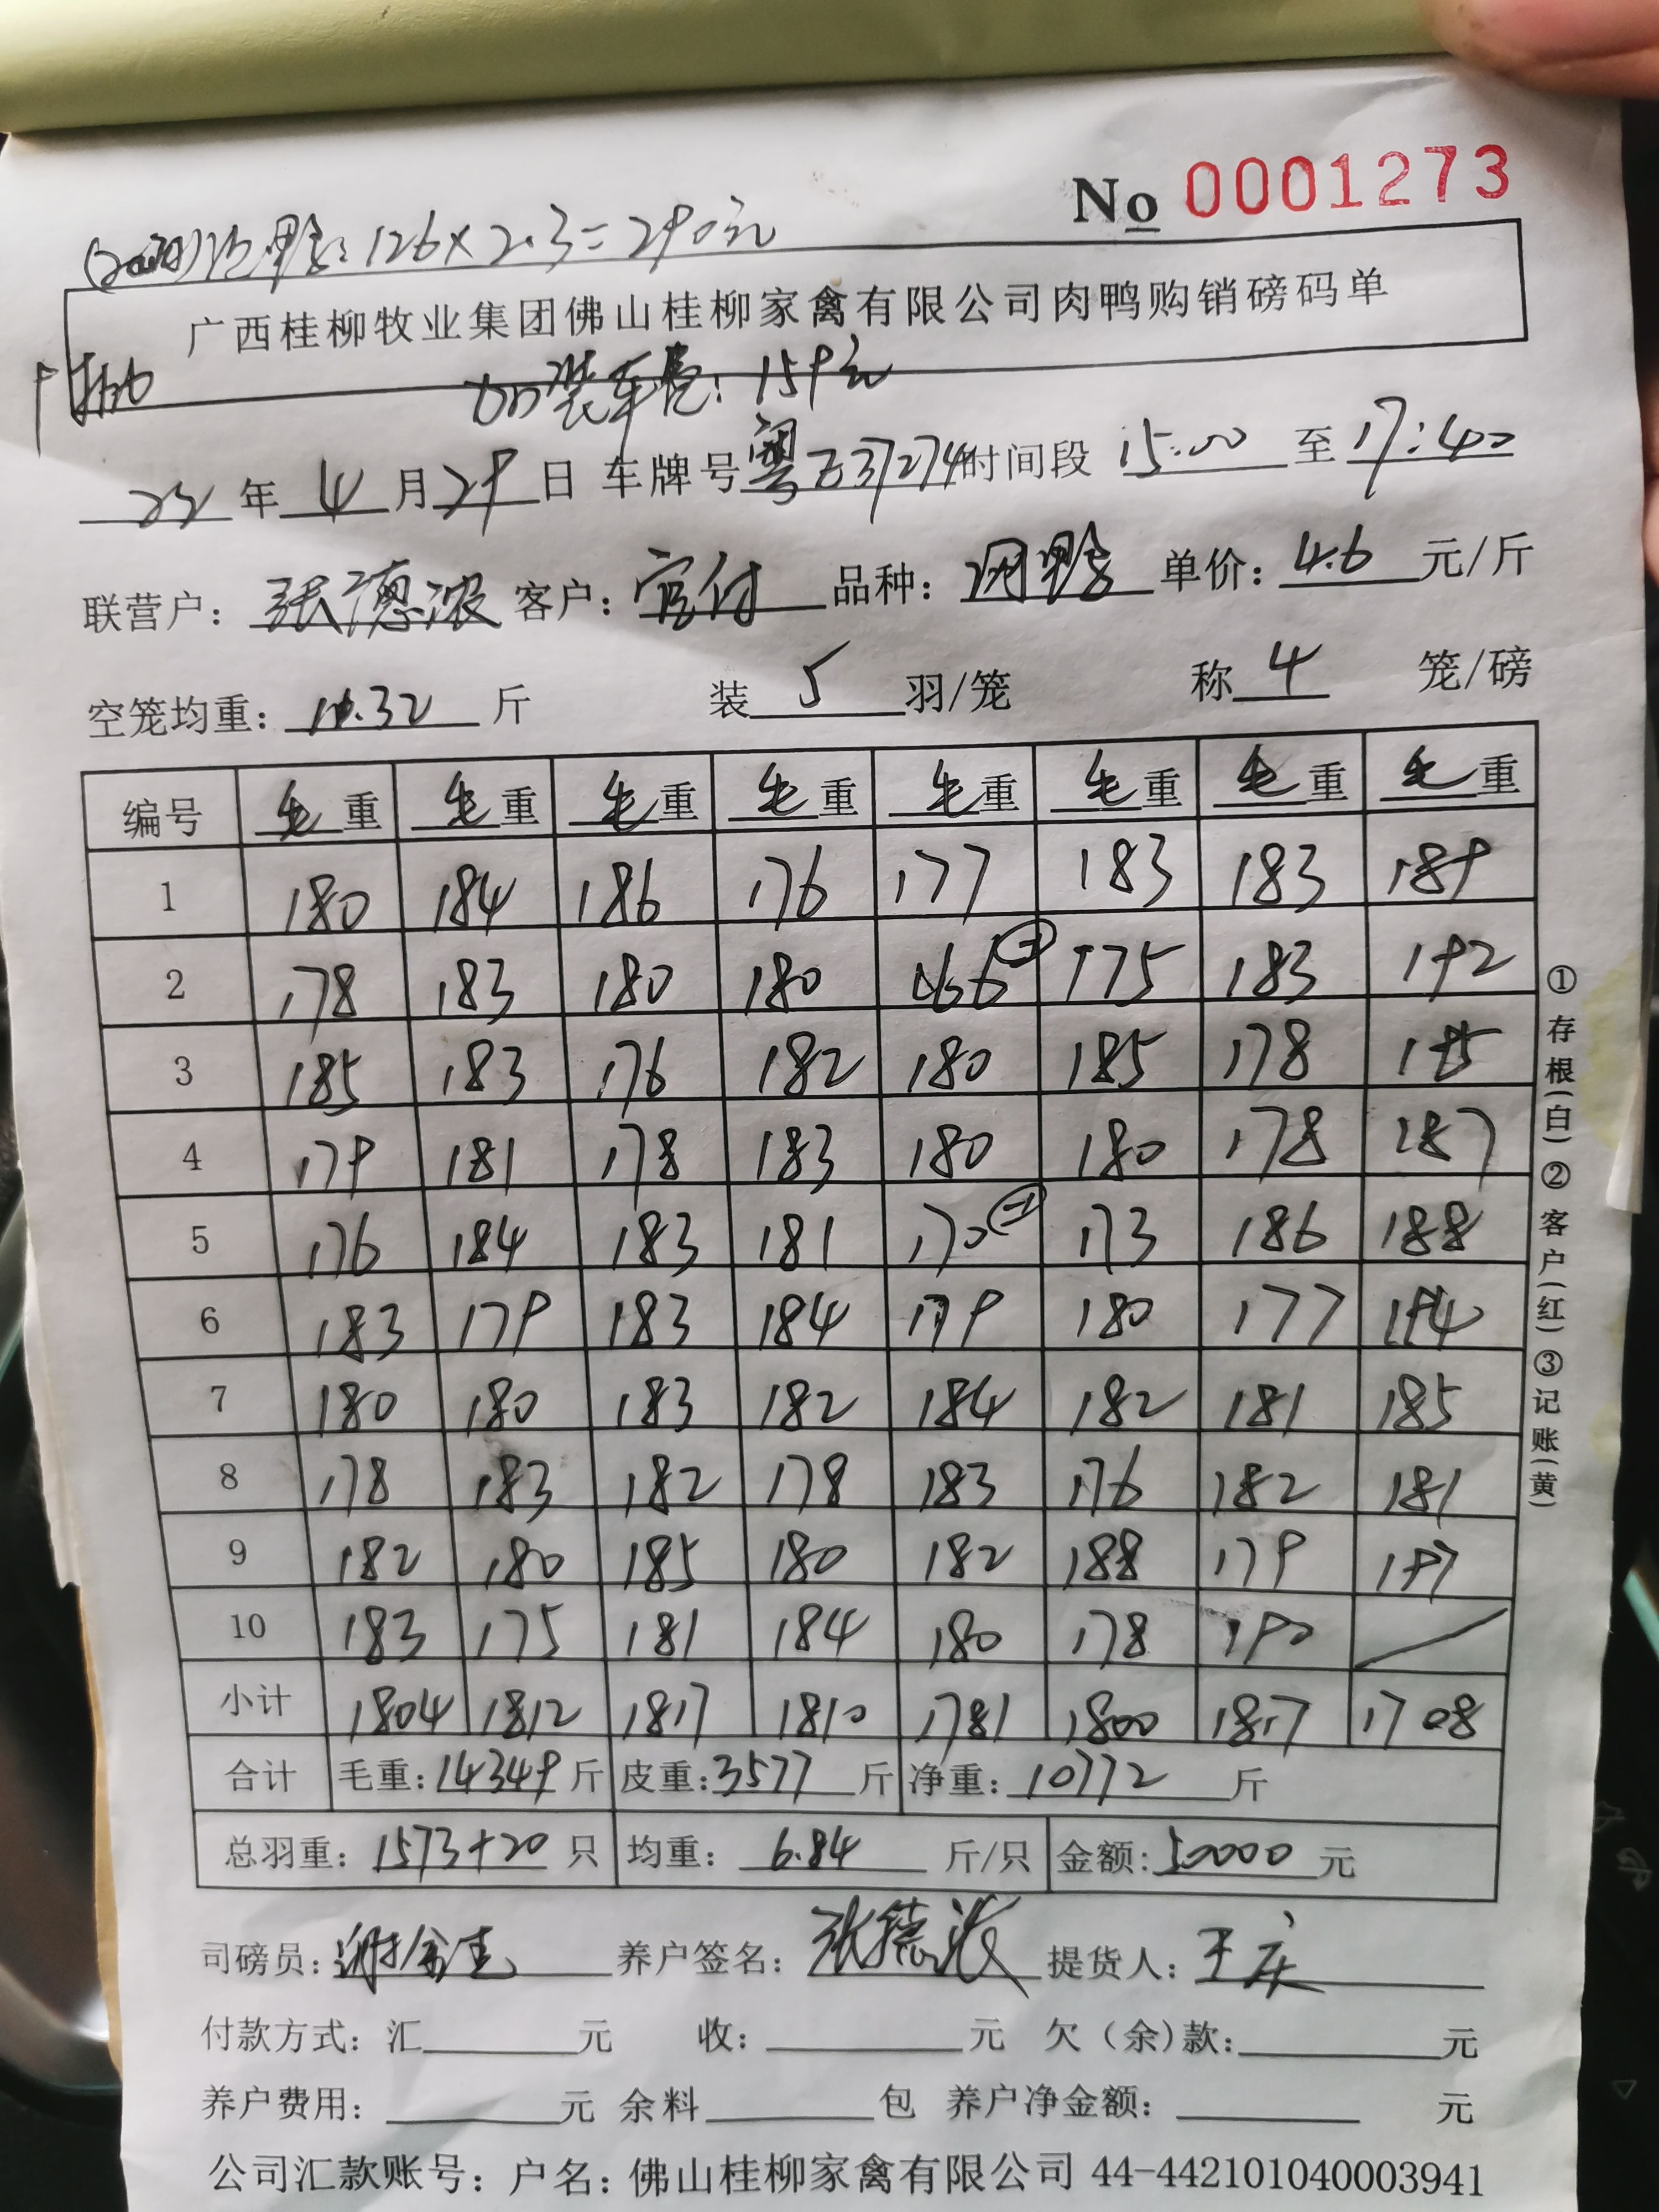 No 0001273
126×2.3=290元
广西桂柳牧业集团佛山桂柳家禽有限公司肉鸭购销磅码单
加装车费：159元
22年4月29日 车牌号粤Z37274时间段15:00至17:40
联营户：张德浓 客户：官付 品种：肉鸭 单价：4.6元/斤
空笼均重：11.32斤 装5羽/笼 称4笼/磅
编号 毛重 毛重 毛重 毛重 毛重 毛重 毛重 毛重
1 180 184 186 176 177 183 183 189
2 178 183 180 180 166 175 183 192
3 185 183 176 182 180 185 178 195
4 179 181 178 183 180 180 178 187
5 176 184 183 181 170 173 186 188
6 183 179 183 184 179 180 177 194
7 180 180 183 182 184 182 181 185
8 178 183 182 178 183 176 182 181
9 182 180 185 180 182 188 179 197
10 183 175 181 184 180 178 190
小计 1804 1812 1817 1810 1781 1800 1817 1708
合计 毛重：14349斤 皮重：3577斤 净重：10772斤
总羽重：1573+20只 均重：6.84斤/只 金额：50000元
司磅员： 养户签名：张德浓 提货人：王庆
付款方式：汇 元 收： 元 欠（余）款： 元
养户费用： 元 余料 包 养户净金额： 元
公司汇款账号：户名：佛山桂柳家禽有限公司 44-442101040003941
①存根（白）②客户（红）③记账（黄）